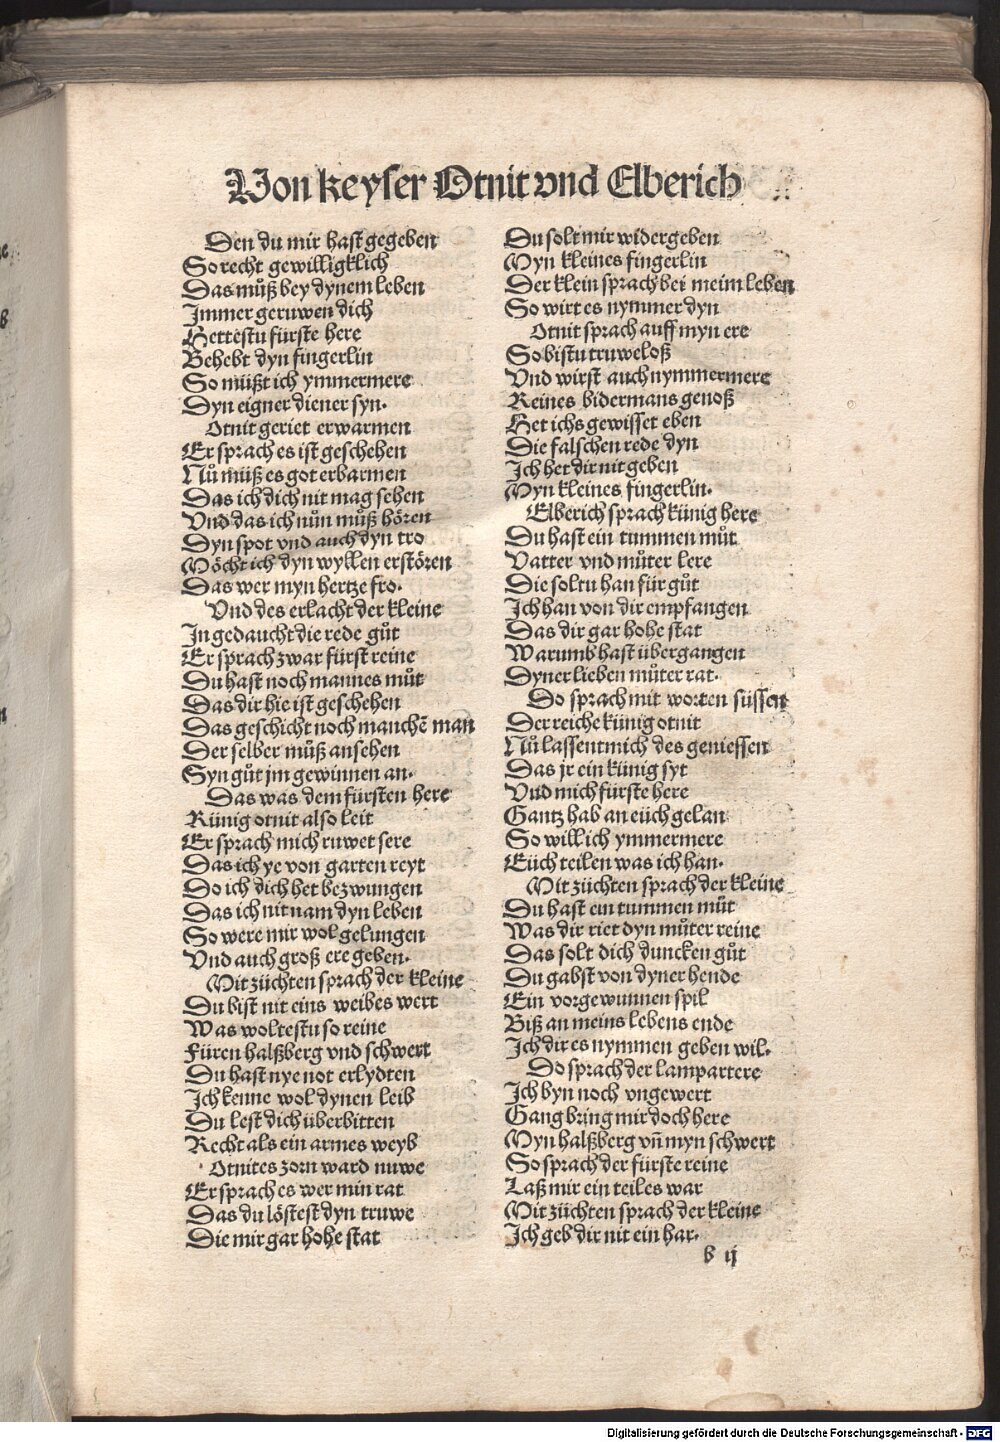 Von keyser Otnit vnd Elberich
Den du mir hast gegeben
So recht gewilligklich
Das můß bey dynem leben
Immer geruwen dich
Hettestu fürste here
Behebt dyn fingerlin
So müßt ich ymmermere
Dyn eigner diener syn.
Otnit geriet erwarmen
Er sprach es ist geschehen
Nů müß es got erbarmen
Das ich dich nit mag sehen
Vnd das ich nůn můß hören
Dyn spot vnd auch dyn tro
Möcht ich dyn wyllen erstören
Das wer myn hertze fro.
Vnd des erlacht der kleine
In gedaucht die rede gůt
Er sprach zwar fürst reine
Du hast noch mannes můt
Das dir hie ist geschehen
Das geschicht noch manchē man
Der selber můß ansehen
Syn gůt jm gewinnen an.
Das was dem fürsten here
Künig otnit also leit
Er sprach mich ruwet sere
Das ich ye von garten reyt
Do ich dich het bezwungen
Das ich nit nam dyn leben
So were mir wol gelungen
Vnd auch groß ere geben.
Mit züchten sprach der kleine
Du bist nit eins weibes wert
Was woltestu so reine
Füren halßberg vnd schwert
Du hast nye not erlydten
Ich kenne wol dynen leib
Du lest dich überbitten
Recht als ein armes weyb
Otnites zorn ward nuwe
Er sprach es wer min rat
Das du löstest dyn truwe
Die mir gar hohe stat
Du solt mir widergeben
Myn kleines fingerlin
Der klein sprach bei meim leben
So wirt es nymmer dyn
Otnit sprach auff myn ere
So bistu truweloß
Vnd wirst auch nymmermere
Keines bidermans genoß
Het ichs gewisset eben
Die falschen rede dyn
Ich het dir nit geben
Myn kleines fingerlin.
Elberich sprach künig here
Du hast ein tummen můt
Vatter vnd můter lere
Die soltu han für gůt
Ich han von dir empfangen
Das dir gar hohe stat
Warumb hast übergangen
Dyner lieben můter rat.
Do sprach mit worten süssen
Der reiche künig otnit
Nů lassent mich des geniessen
Das jr ein künig syt
Vnd mich fürste here
Gantz hab an eüch gelan
So will ich ymmermere
Eüch teilen was ich han.
Mit züchten sprach der kleine
Du hast ein tummen můt
Was dir riet dyn můter reine
Das solt dich duncken gůt
Du gabst von dyner hende
Ein vorgewunnen spil
Biß an meins lebens ende
Ich dir es nymmen geben wil.
Do sprach der lampartere
Ich byn noch vngewert
Gang bring mir doch here
Myn halßberg vñ myn schwert
So sprach der fürste reine
Laß mir ein teiles war
Mit züchten sprach der kleine
Ich geb dir nit ein har.
b ij
Digitalisierung gefördert durch die Deutsche Forschungsgemeinschaft - DFG